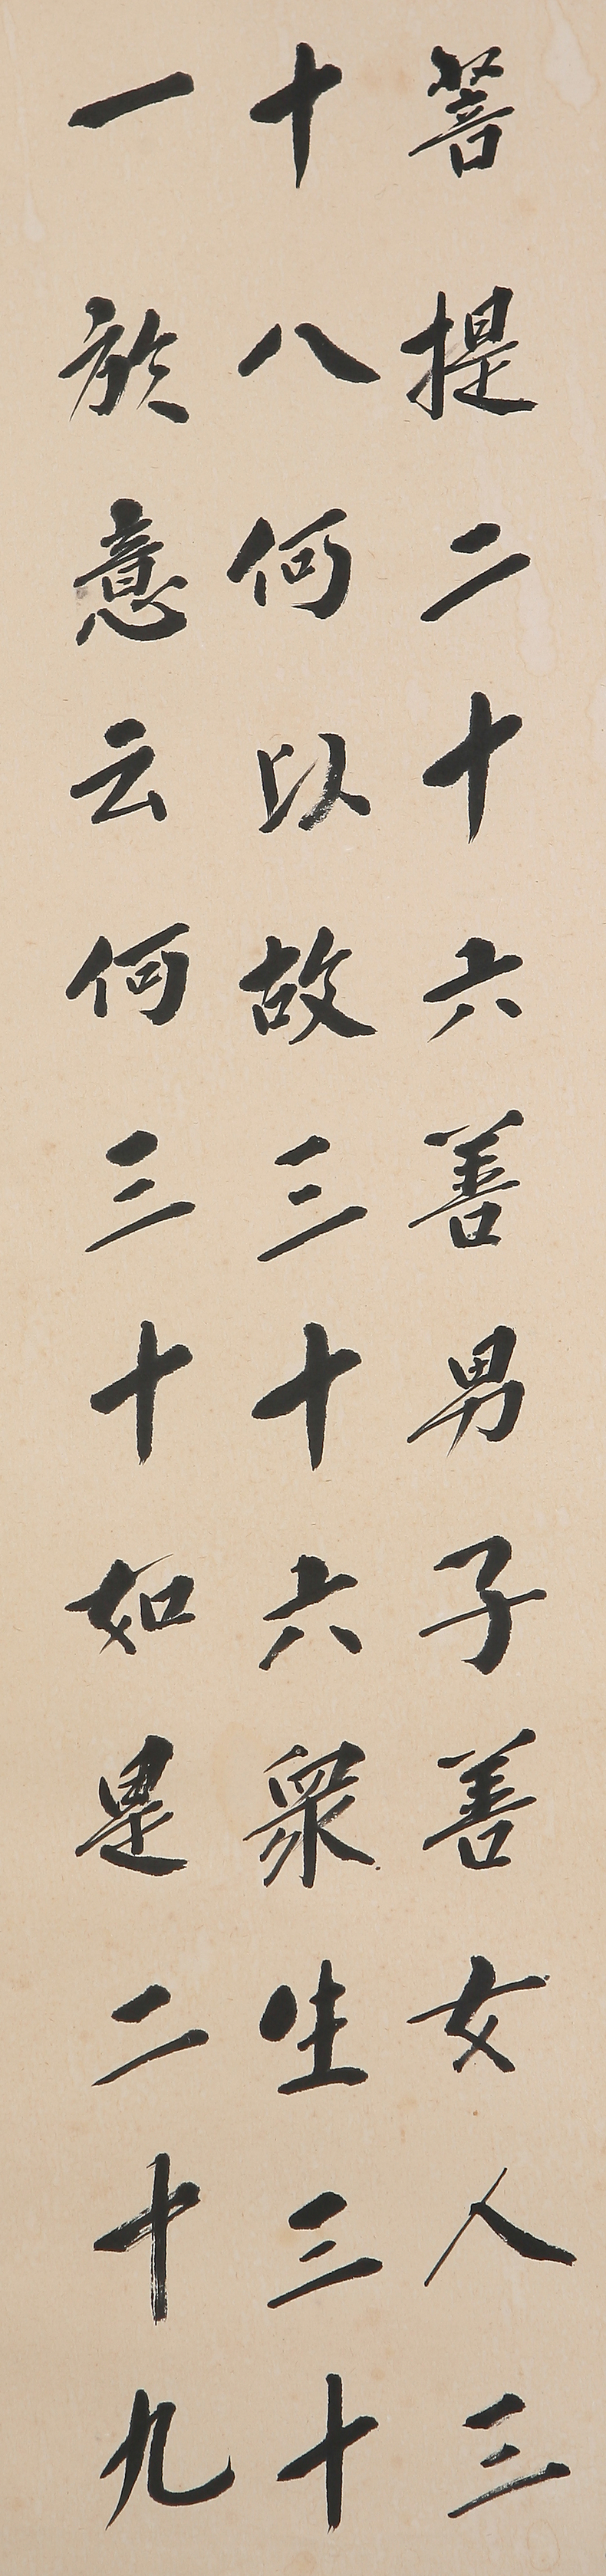 菩提二十六善男子善女人三
十八何以故三十六衆生三十
一於意云何三十如是二十九